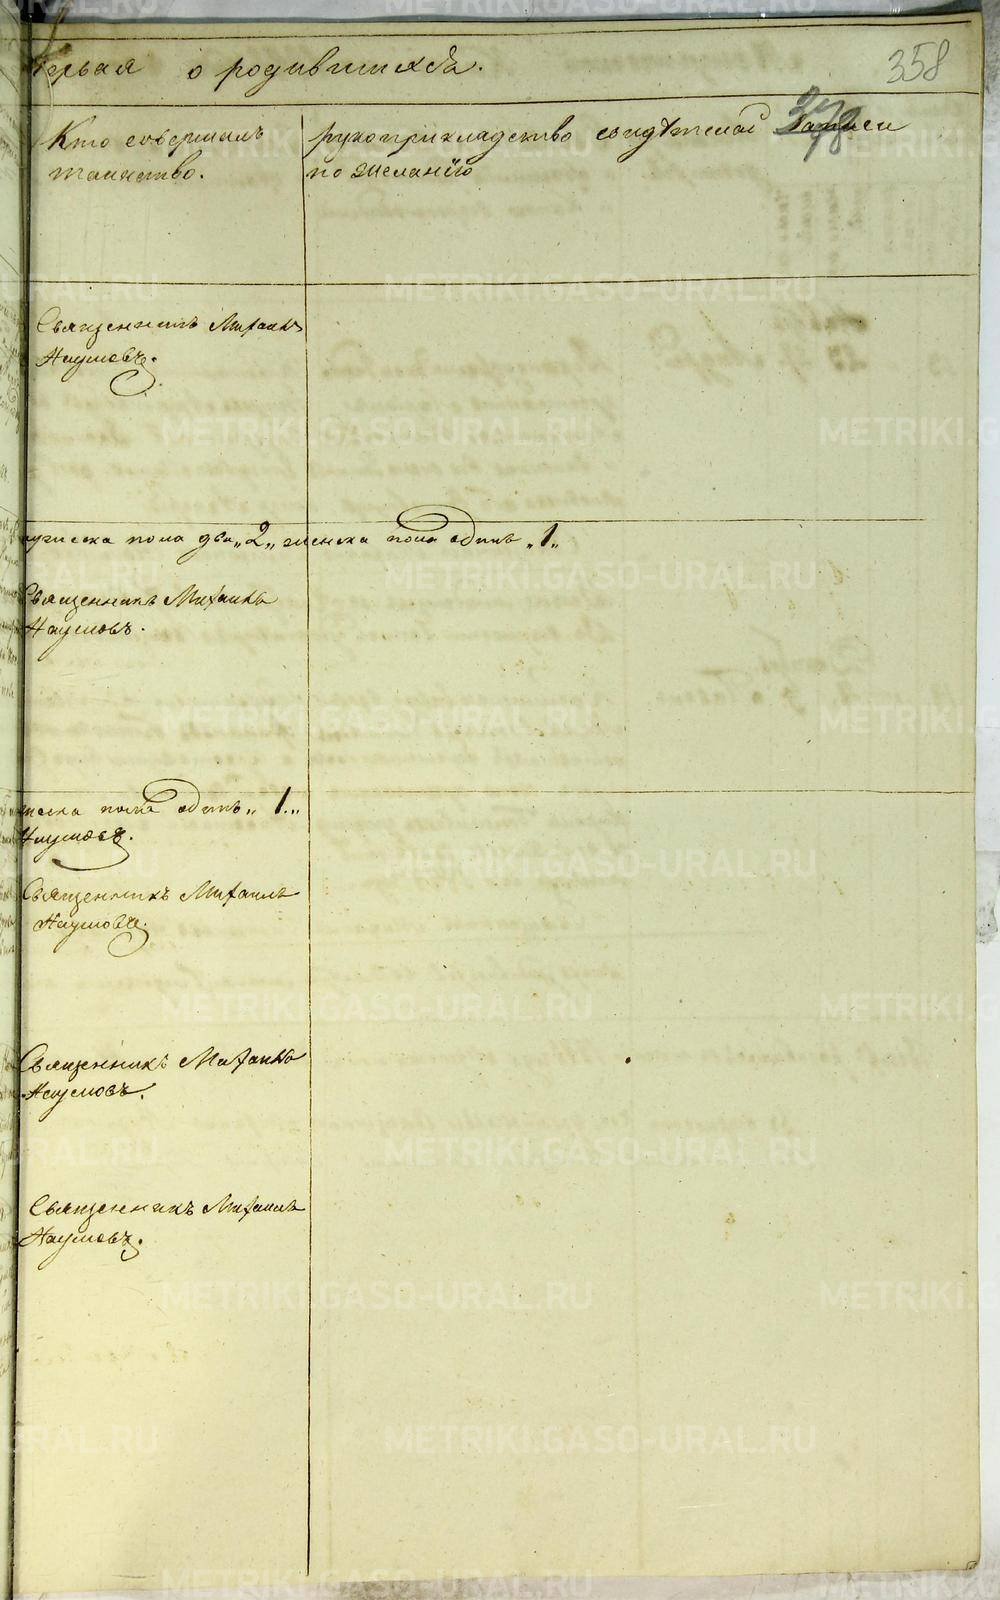 первая о родившихся.
358
Кто совершалъ
таинство.
рукоприкладство свидѣтелей записи
по желанію
Священникъ Михаилъ
Наумовъ.
мужеска пола два „2„ женска пола одинъ „1„
Священникъ Михаилъ
Наумовъ.
пола одинъ „1„
Наумовъ.
Священникъ Михаилъ
Наумовъ.
Священникъ Михаилъ
Наумовъ.
Священникъ Михаилъ
Наумовъ.
METRIKI.GASO-URAL.RU